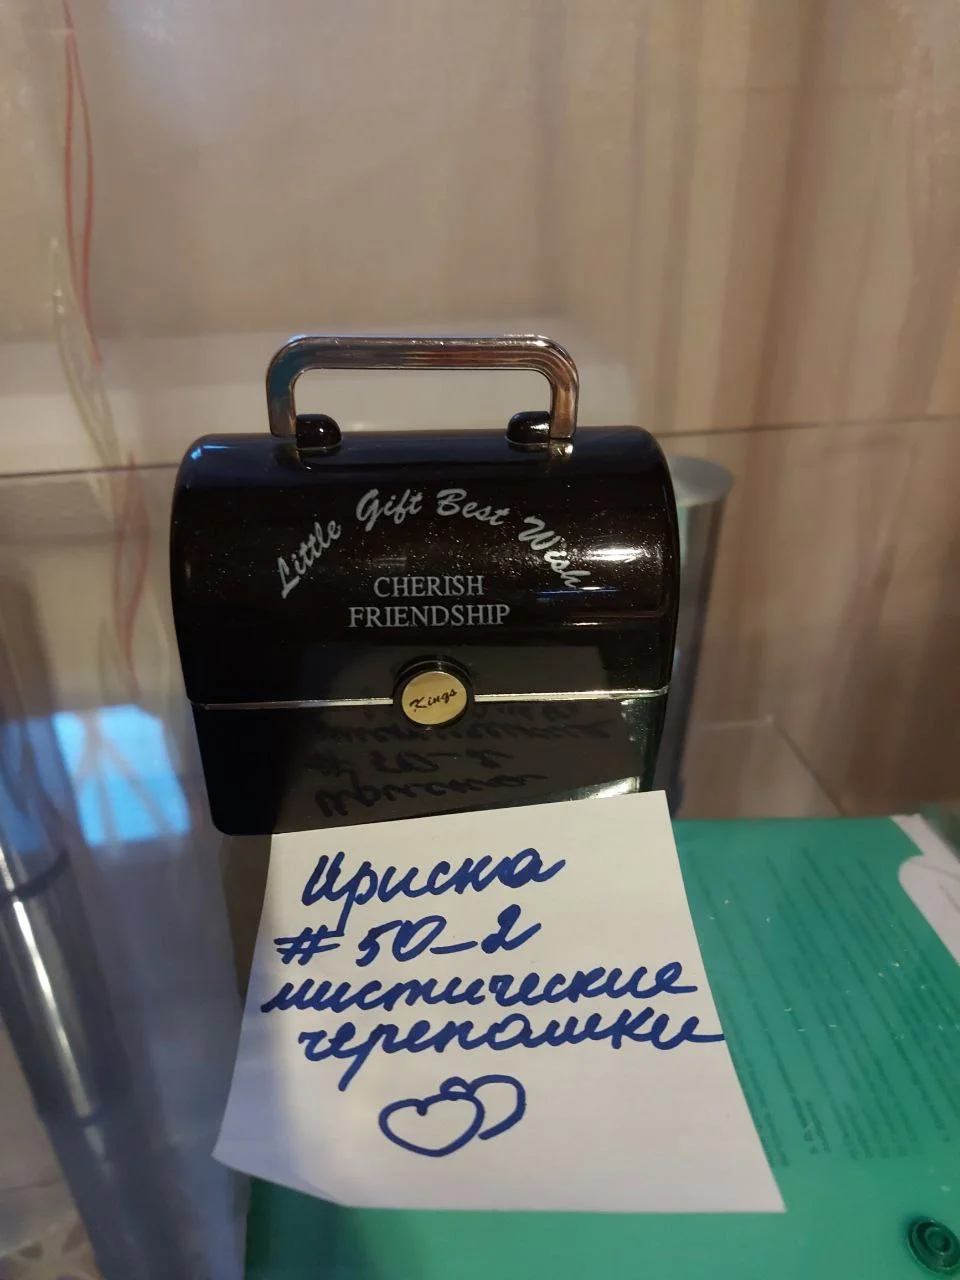 Little Gift Best Wish
CHERISH
FRIENDSHIP
Kings
Ириска
#50_2
мистические
черепашки